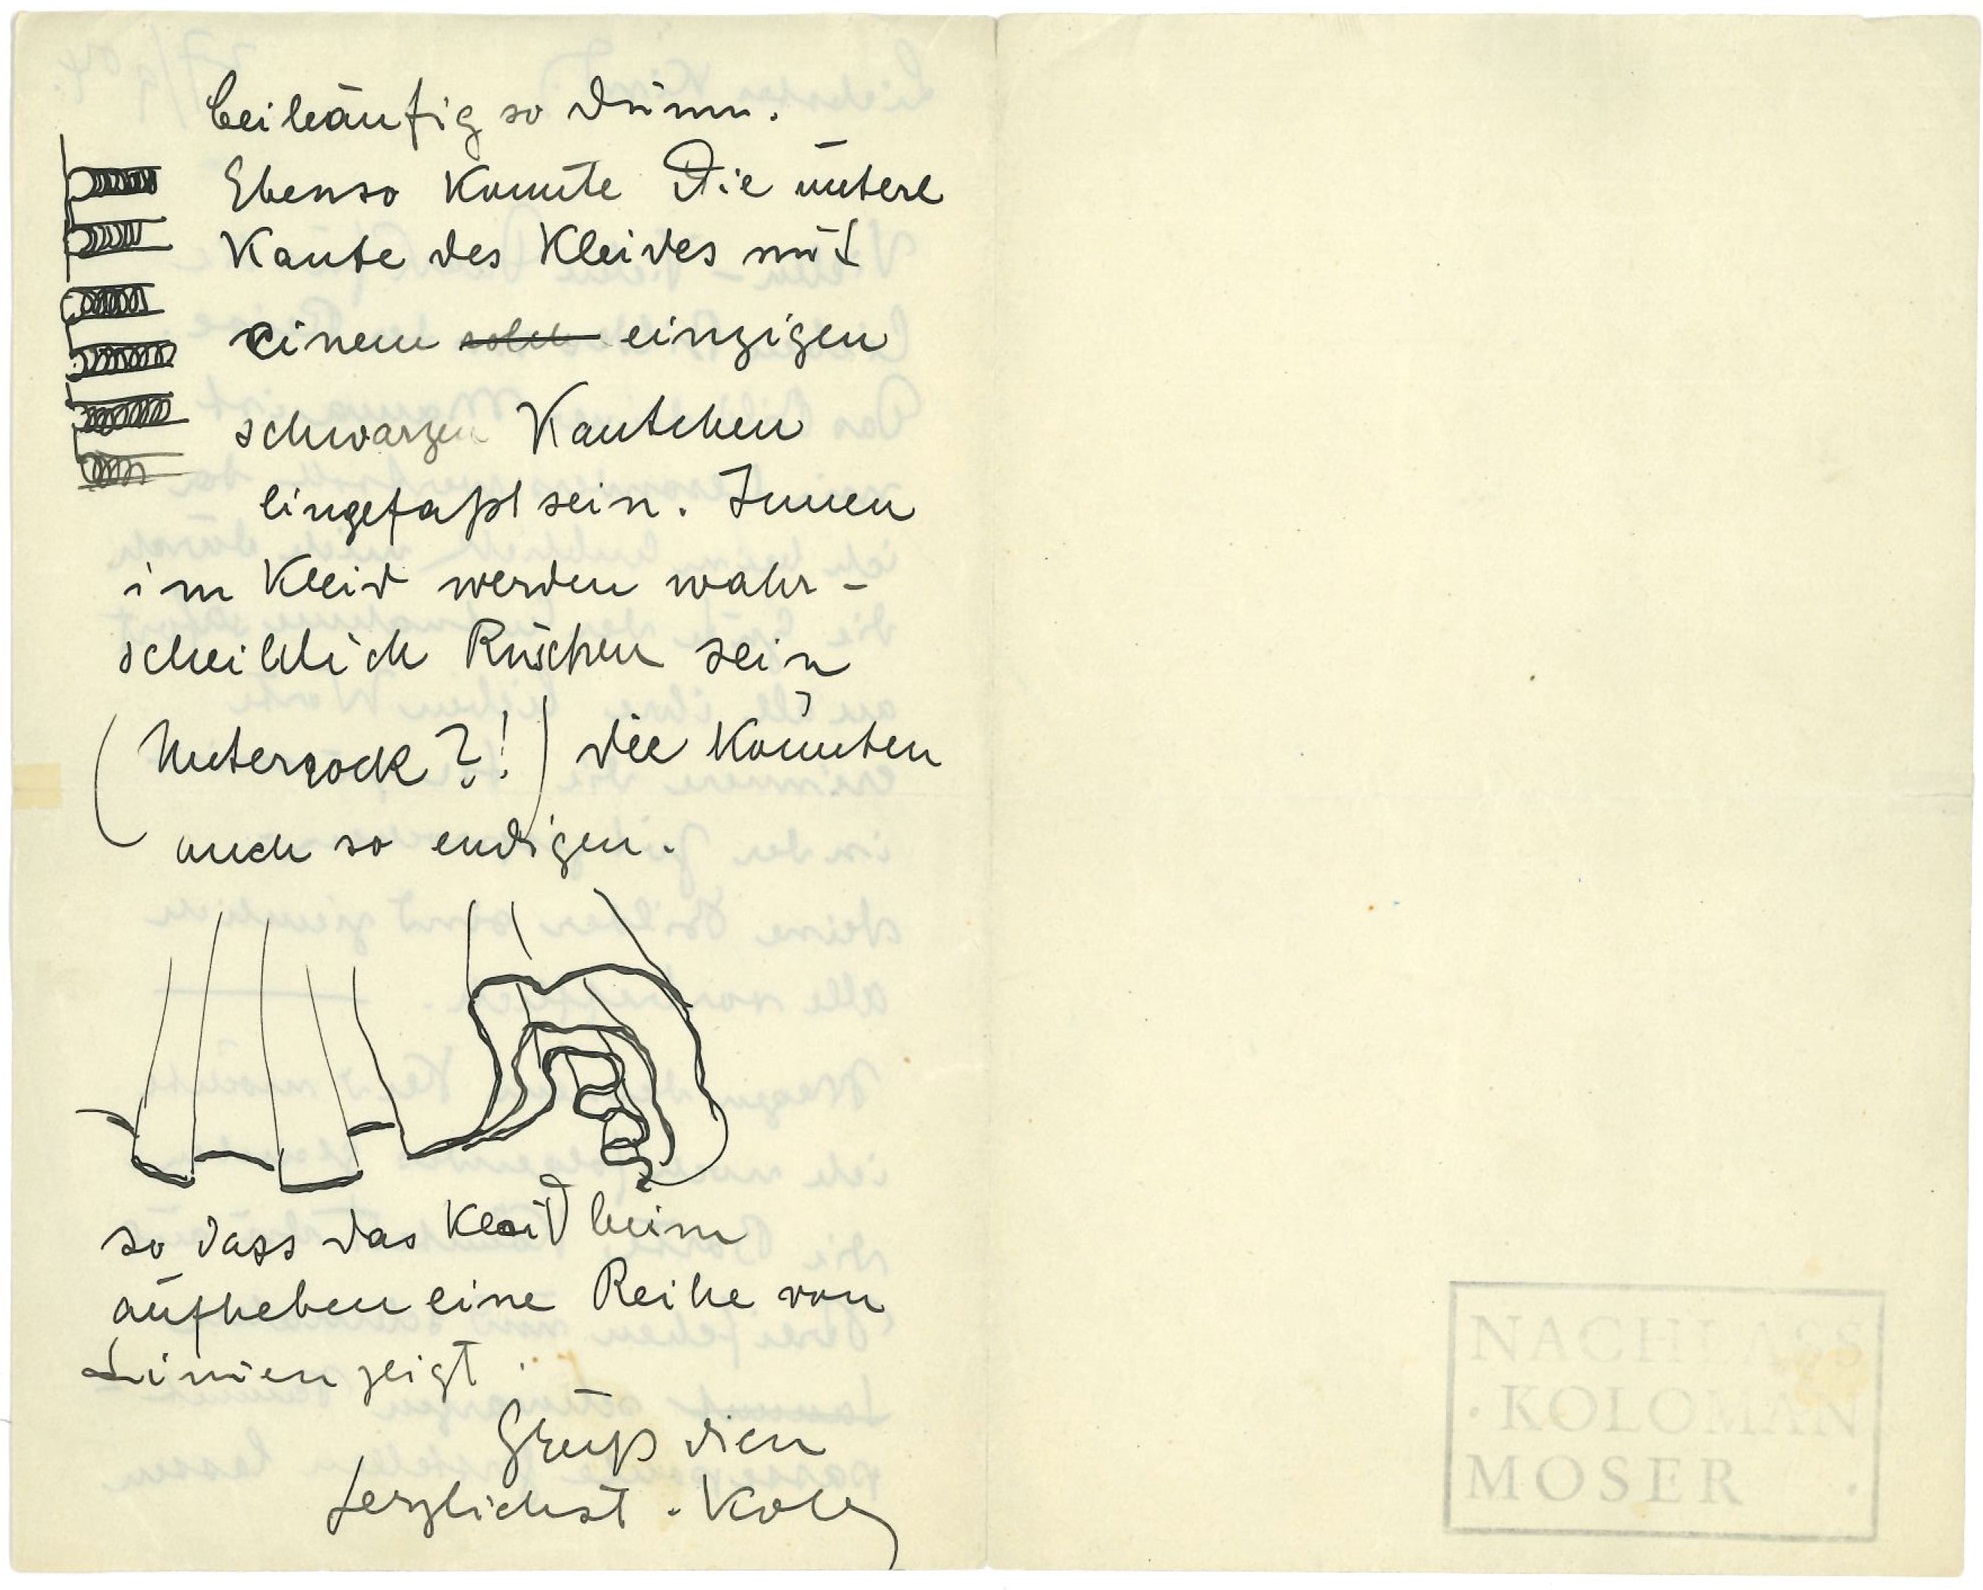 beiläufig so dünn.
Ebenso könnte die untere
Kante des Kleides mit
einem solch einzigen
schwarzen Kantchen
eingefaßt sein. Innen
im Kleid werden wahr-
scheinlich Rüschen sein
(Unterrock?!) die könnten
auch so endigen.
so dass das Kleid beim
aufheben eine Reihe von
Linien zeigt.
Grüß dich
herzlichst. Kolo
NACHLASS
· KOLOMAN
MOSER ·